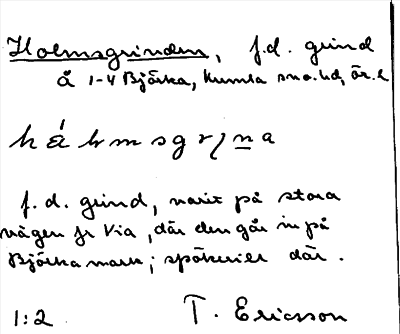 Holmsgrinden, f.d. grind
å 1-4 Björka, Kumla sn o. hd, ör. l
f. d. grind, varit på stora
vägen fr Via, där den går in på
Björka mark; spökerier där.
1:2 T. Ericsson